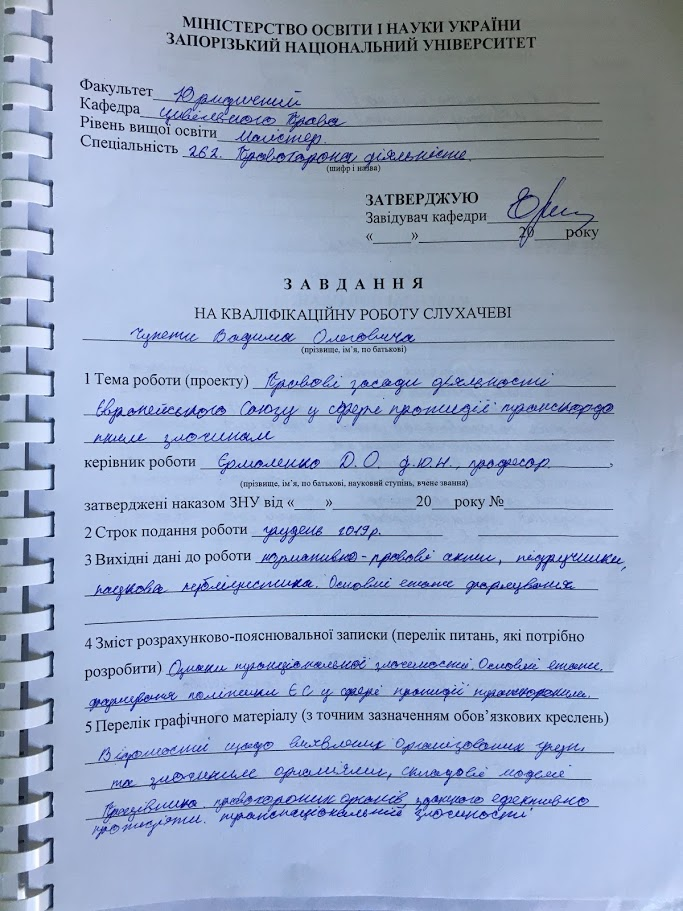 МІНІСТЕРСТВО ОСВІТИ І НАУКИ УКРАЇНИ
ЗАПОРІЗЬКИЙ НАЦІОНАЛЬНИЙ УНІВЕРСИТЕТ
Факультет Юридичний
Кафедра цивільного Права
Рівень вищої освіти магістр
Спеціальність 262. Правоохорона діяльність
(шифр і назва)
ЗАТВЕРДЖУЮ
Завідувач кафедри
«____»____________20___року
З А В Д А Н Н Я
НА КВАЛІФІКАЦІЙНУ РОБОТУ СЛУХАЧЕВІ
Вадима Олеговича
(прізвище, ім'я, по батькові)
1 Тема роботи (проекту) Правові засади діяльності
Європейського Союзу у сфері протидії транскордо
нним злочинам
керівник роботи Єрмоленко Д. О. д.ю.н., професор,
(прізвище, ім'я, по батькові, науковий ступінь, вчене звання)
затверджені наказом ЗНУ від «____»____________20___року №
2 Строк подання роботи грудень 2019р.
3 Вихідні дані до роботи нормативно-правові акти, підручники,
наукова публіцистика. Основні етапи формування
4 Зміст розрахунково-пояснювальної записки (перелік питань, які потрібно
розробити) Ознаки злочинності. Основні етапи
формування політики ЄС у сфері протидії
5 Перелік графічного матеріалу (з точним зазначенням обов'язкових креслень)
Відомості щодо виявлених організованих груп
та злочинних , складові моделі
Працівника правоохорон органів здатного ефективно
протидіяти транснаціональній злочинності